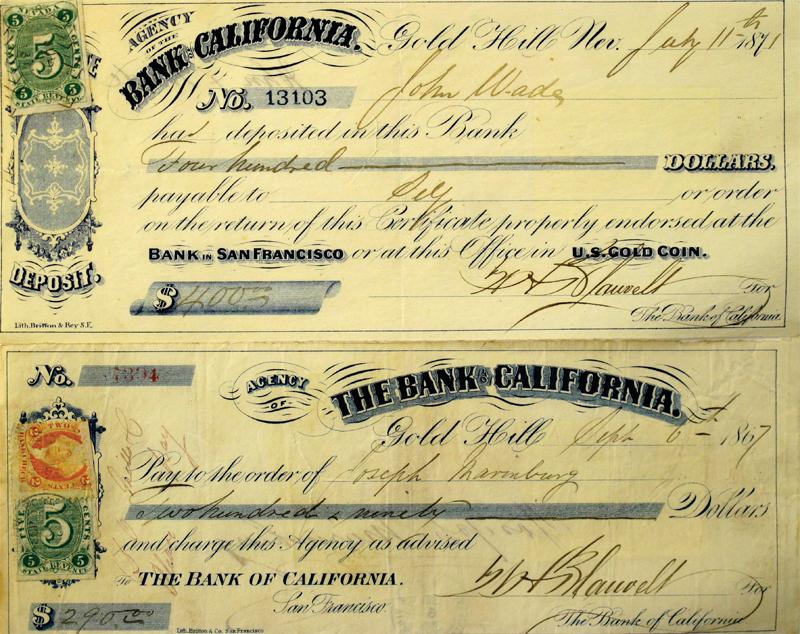 AGENCY
OF THE
BANK OF CALIFORNIA.
Gold Hill Nev. July 11th 1871
No. 13103
John Wade
has deposited in this Bank
Four hundred DOLLARS.
payable to Self or order
on the return of this Certificate properly endorsed at the
BANK IN SAN FRANCISCO or at this Office in U.S. GOLD COIN.
$ 400.00
W H Blauvelt For
The Bank of California.
FIVE CENTS
5
5 STATE REVENUE 5
DEPOSIT.
Lith. Britton & Rey S.F.
No.
AGENCY
OF
THE BANK OF CALIFORNIA.
Gold Hill Sept 6th 1867
Pay to the order of Joseph
Two hundred & ninety Dollars
and charge this Agency as advised
To THE BANK OF CALIFORNIA.
San Francisco.
W H Blauvelt For
The Bank of California
$ 290.00
TWO
2 CENTS 2
FIVE CENTS
5
5 STATE REVENUE 5
Lith. Britton & Co. San Francisco